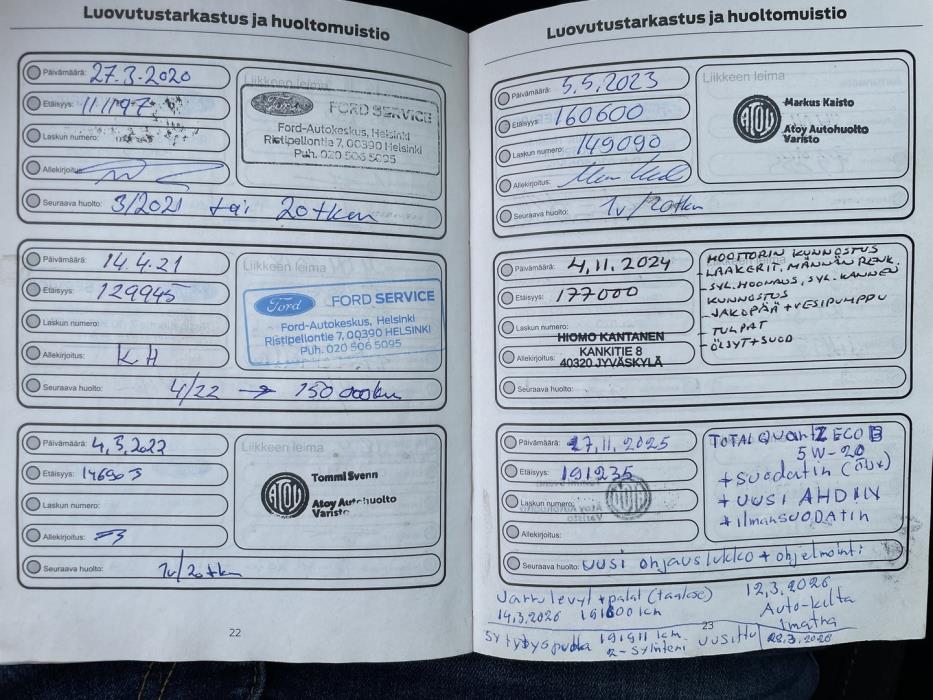 Luovutustarkastus ja huoltomuistio
Päivämäärä: 27.3.2020
Etäisyys: 111197
Laskun numero:
Allekirjoitus:
Seuraava huolto: 3/2021 tai 20tkm
Liikkeen leima
Ford FORD SERVICE
Ford-Autokeskus, Helsinki
Ristipellontie 7, 00390 Helsinki
Puh. 020 506 5095
Päivämäärä: 14.4.21
Etäisyys: 129945
Laskun numero:
Allekirjoitus: KH
Seuraava huolto: 4/22 → 150 000km
Liikkeen leima
Ford FORD SERVICE
Ford-Autokeskus, Helsinki
Ristipellontie 7, 00390 HELSINKI
Puh. 020 506 5095
Päivämäärä: 4.3.2022
Etäisyys:
Laskun numero:
Allekirjoitus:
Seuraava huolto: 1v/20tkm
Liikkeen leima
ATOY
Tommi Svenn
Atoy Autohuolto
Varisto
22
Luovutustarkastus ja huoltomuistio
Päivämäärä: 5.5.2023
Etäisyys: 160600
Laskun numero: 149090
Allekirjoitus:
Seuraava huolto: 1v/20tkm
Liikkeen leima
ATOY
Markus Kaisto
Atoy Autohuolto
Varisto
Päivämäärä: 4.11.2024
Etäisyys: 177000
Laskun numero:
HIOMO KANTANEN
Allekirjoitus: KANKITIE 8
40320 JYVÄSKYLÄ
Seuraava huolto:
- MOOTTORIN KUNNOSTUS
- LAAKERIT, MÄNNÄN RENK.
- SYL.HOONAUS, SYL.KANNEN
KUNNOSTUS
- JAKOPÄÄ + VESIPUMPPU
- TULPAT
- ÖLJYT+SUOD
Päivämäärä: 17.11.2025
Etäisyys: 191235
Laskun numero:
Allekirjoitus:
Seuraava huolto: UUSi ohjauslukko + ohjelmointi
TOTAL QUARTZ ECO B
5W-20
+ SUODATIN (ÖLJY)
+ UUSI AHDIN
+ ilmanSUODATIN
Jarrulevyt + palat (taakse)
14.3.2026 191600 km
12.3.2026
Auto-kilta
1matka
23
Sytytyspuola 191911 km
2-sylinteri uusittu 28.3.2026